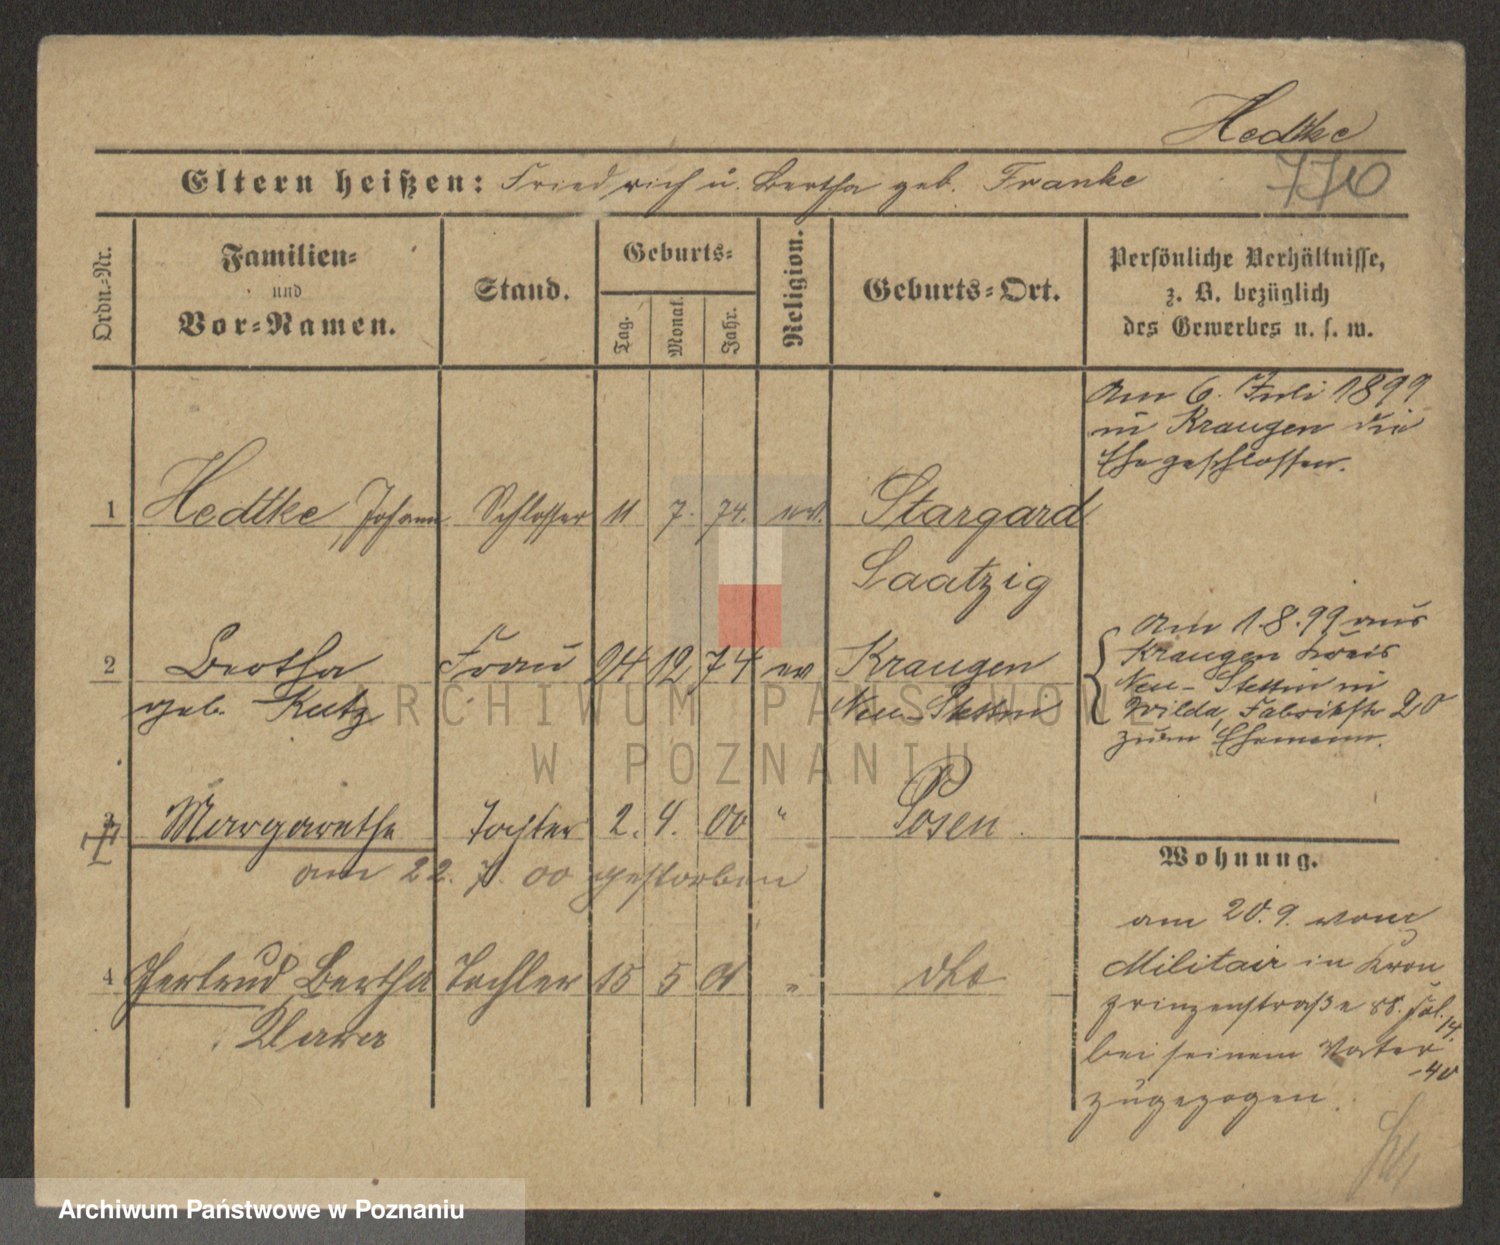 Hedtke
Eltern heißen: Friedrich u. Bertha geb. Franke
770
Ordn.-Nr.
Familien-
und
Vor-Namen.
Stand.
Geburts-
Tag.
Monat.
Jahr.
Religion.
Geburts-Ort.
Persönliche Verhältnisse,
z. B. bezüglich
des Gewerbes u. s. w.
am 6. Juli 1899
in Kraugen die
Ehe geschlossen.
1 Hedtke Johann Schlosser 11 7. 74. ev. Stargard
Saatzig
2 Bertha Frau 24 12 74 ev Kraugen
geb. Kutz Neu-Stettin
am 1.8.99 aus
Kraugen Kreis
Neu-Stettin in
Wilda, Fabrikstr 20
zum Ehemann.
3 Margarethe Tochter 2. 4. 00 " Posen
am 22. 7. 00 gestorben
4 Gertrud Bertha Tochter 15 5 01 " dto
Klara
Wohnung.
am 20.9. vom
Militair in Kron
prinzenstraße 88.
bei seinem Vater
-40
zugezogen.
ARCHIWUM PAŃSTWOWE
W POZNANIU
Archiwum Państwowe w Poznaniu